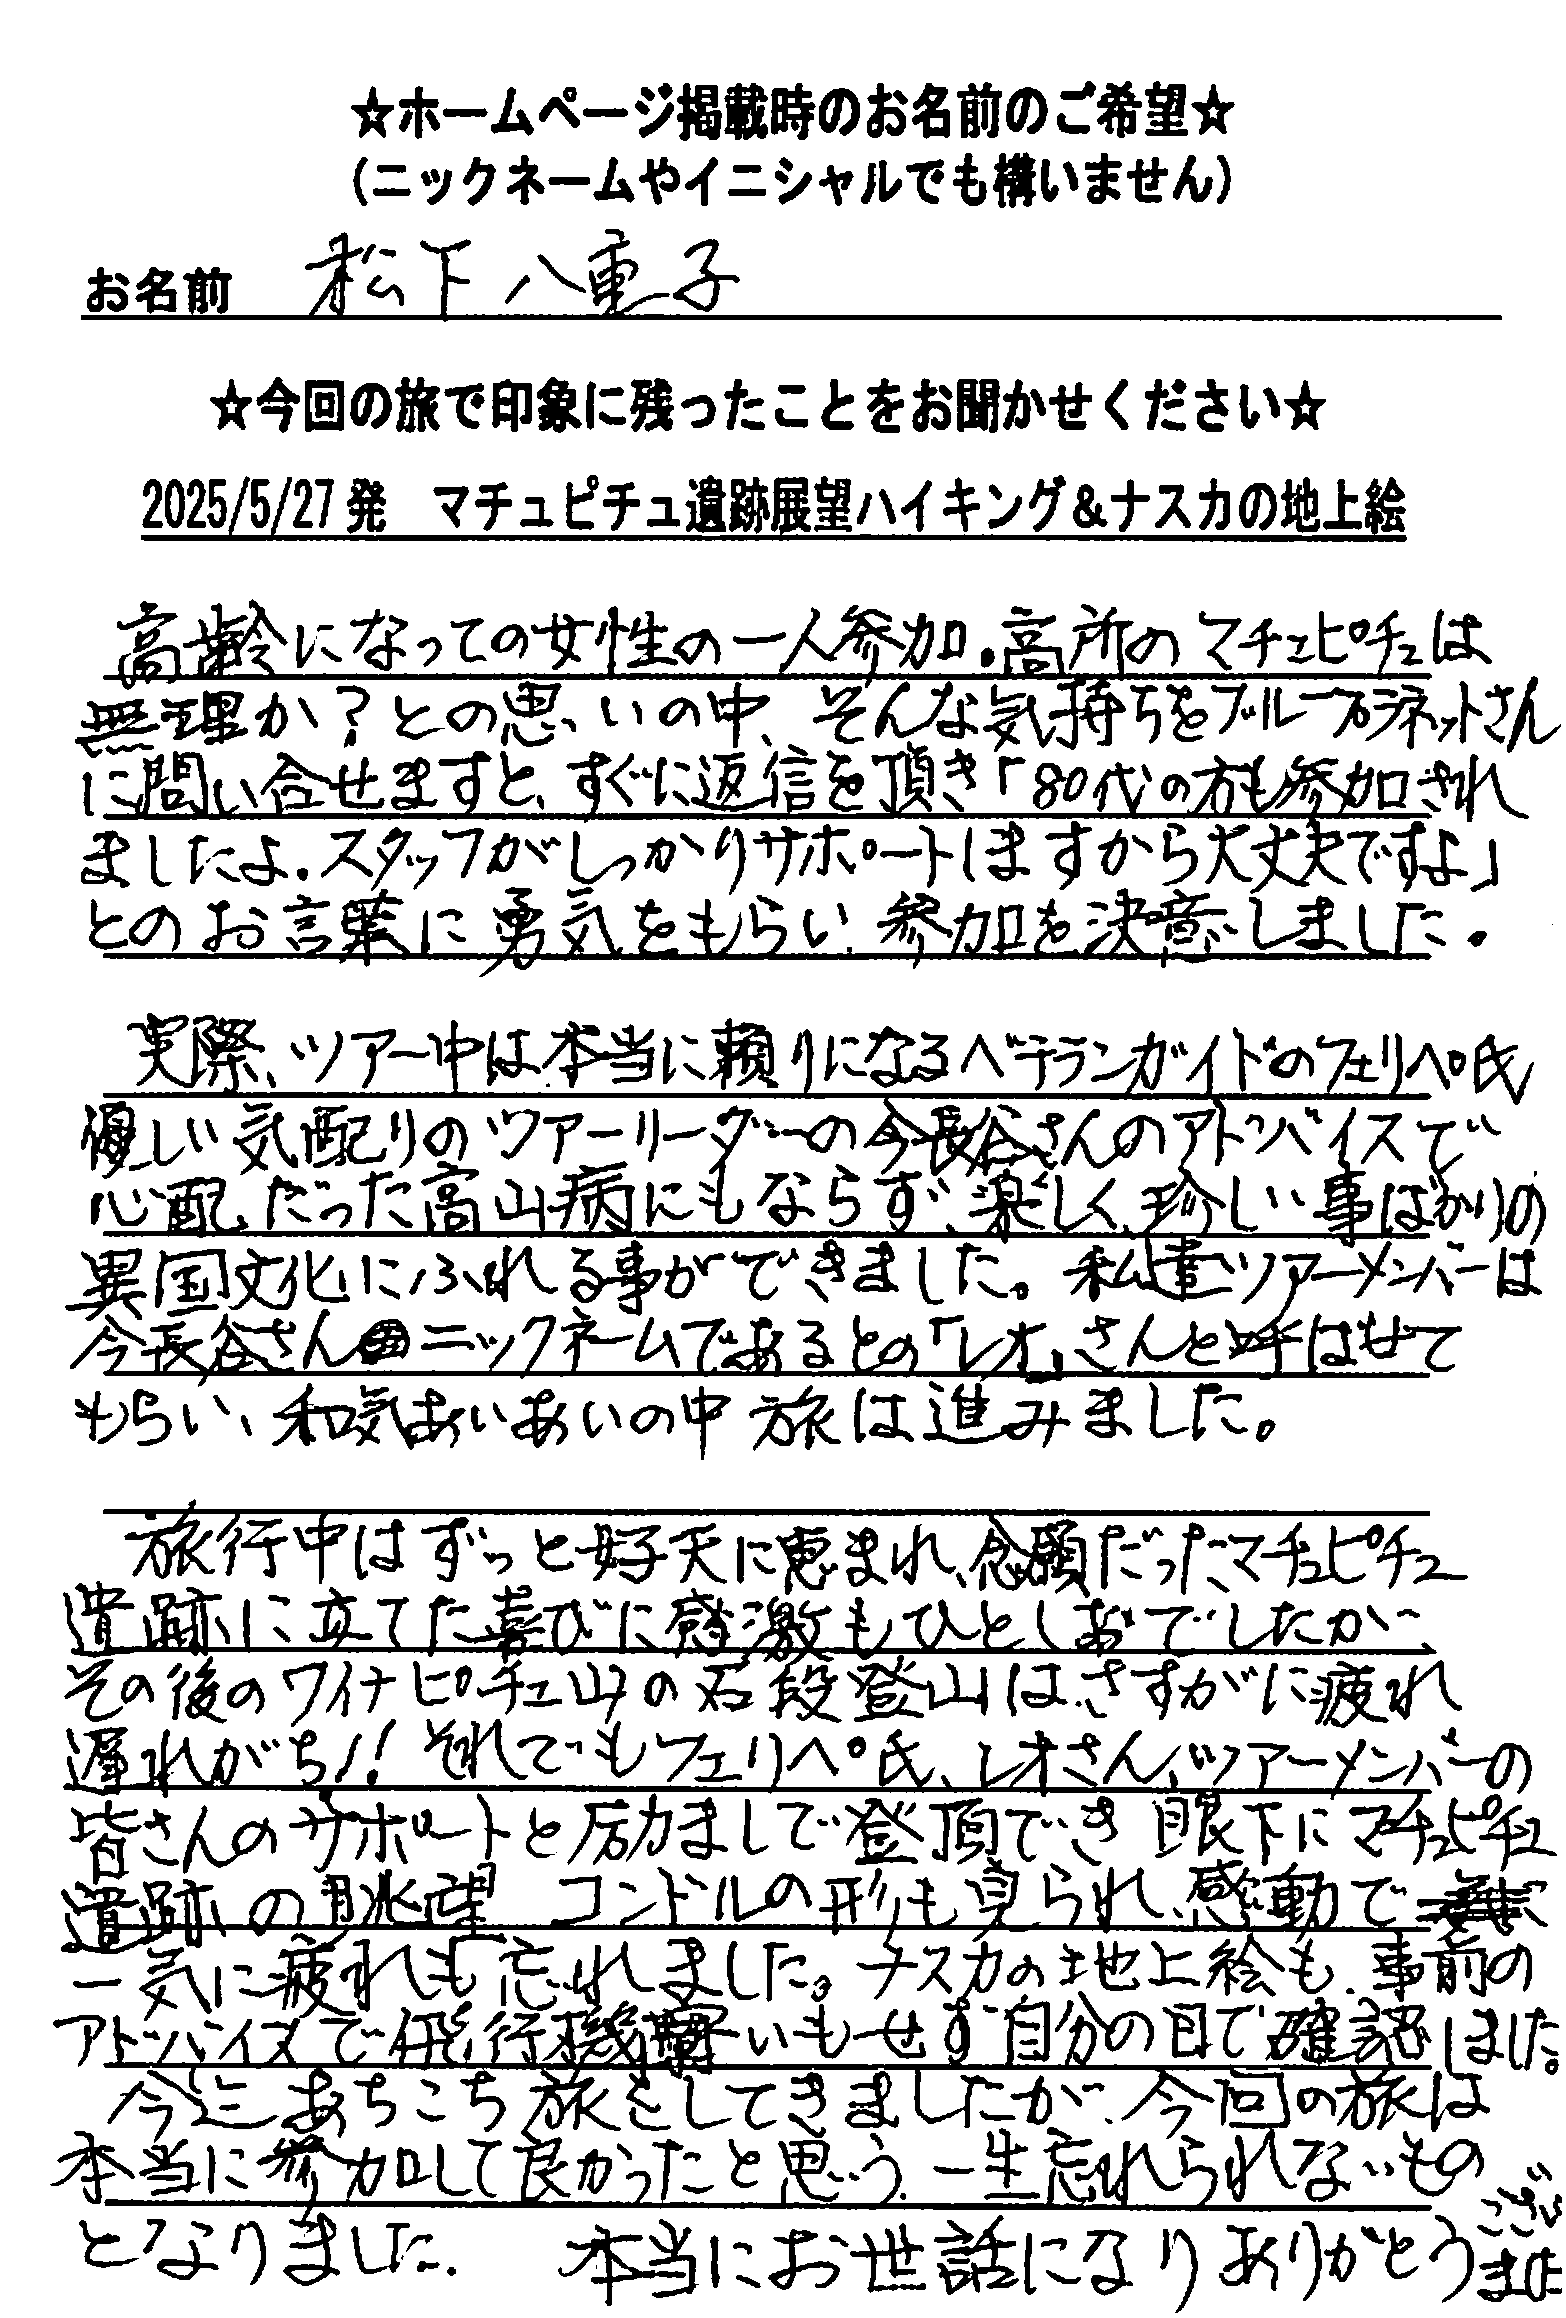 ☆ホームページ掲載時のお名前のご希望☆
（ニックネームやイニシャルでも構いません）
お名前 松下八重子
☆今回の旅で印象に残ったことをお聞かせください☆
2025/5/27発 マチュピチュ遺跡展望ハイキング＆ナスカの地上絵
高齢になっての女性の一人参加。高所のマチュピチュは
無理か？との思いの中、そんな気持ちをブループラネットさん
に問い合せますと、すぐに返信を頂き「80代の方も参加され
ましたよ。スタッフがしっかりサポートしますから大丈夫ですよ」
とのお言葉に勇気をもらい、参加を決意しました。
実際、ツアー中は本当に頼りになるベテランガイドのフェリペ氏
優しい気配りのツアーリーダーの今長谷さんのアドバイスで
心配だった高山病にもならず、楽しく、珍しい事ばかりの
異国文化にふれる事ができました。私達ツアーメンバーは
今長谷さんニックネームであるとの「レオ」さんと呼ばせて
もらい、和気あいあいの中 旅は進みました。
旅行中はずっと好天に恵まれ、念願だったマチュピチュ
遺跡に立てた喜びに感激もひとしおでしたが、
その後のワイナピチュ山の石段登山は、さすがに疲れ
遅れがち!! それでもフェリペ氏、レオさん、ツアーメンバーの
皆さんのサポートと励ましで登頂でき 眼下にマチュピチュ
遺跡の眺望 コンドルの形も見られ、感動で
一気に疲れも忘れました。ナスカの地上絵も、事前の
アドバイスで飛行機酔いもせず自分の目で確認しました。
今迄あちこち旅をしてきましたが、今回の旅は
本当に参加して良かったと思う、一生忘れられないもの
となりました。 本当にお世話になりありがとうござい
ました